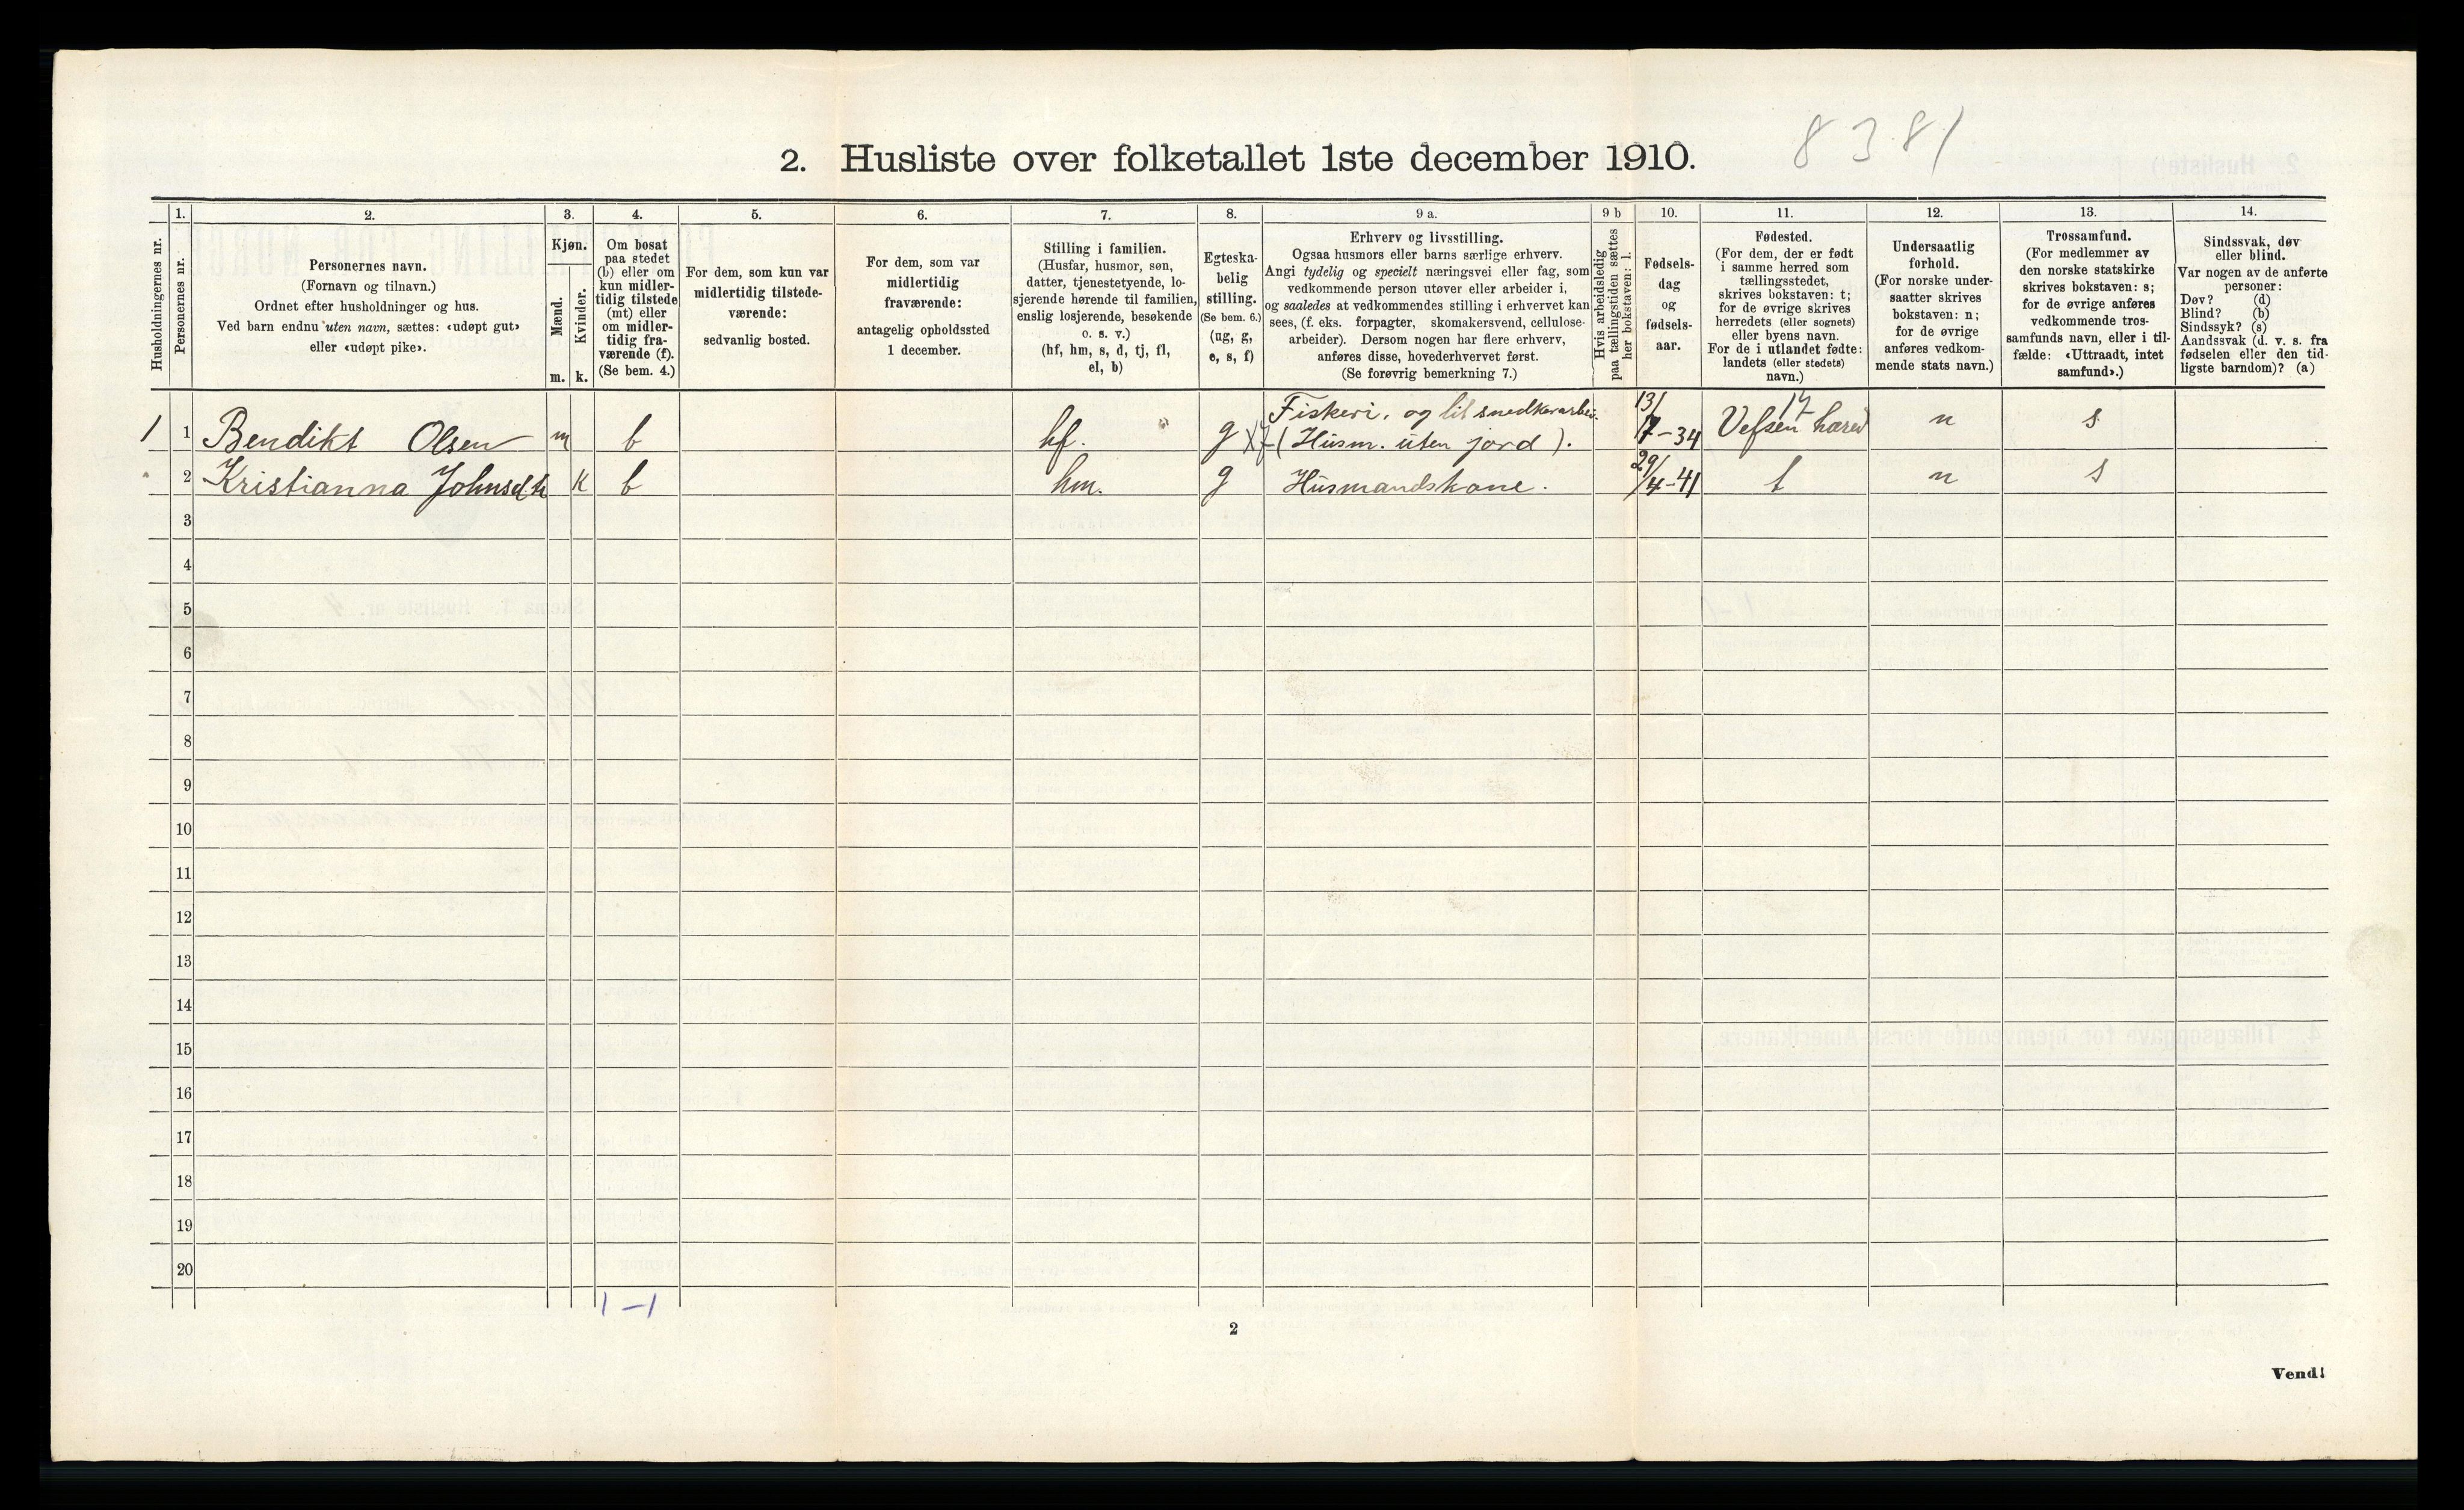 8381
2. Husliste over folketallet 1ste december 1910.
Husholdningernes nr.
1.
Personernes nr.
2.
Personernes navn.
(Fornavn og tilnavn.)
Ordnet efter husholdninger og hus.
Ved barn endnu uten navn, sættes: «udøpt gut»
eller «udøpt pike».
3.
Kjøn.
Mænd.
Kvinder.
m. k.
4.
Om bosat
paa stedet
(b) eller om
kun midler-
tidig tilstede
(mt) eller
om midler-
tidig fra-
værende (f).
(Se bem. 4.)
5.
For dem, som kun var
midlertidig tilstede-
værende:
sedvanlig bosted.
6.
For dem, som var
midlertidig
fraværende:
antagelig opholdssted
1 december.
7.
Stilling i familien.
(Husfar, husmor, søn,
datter, tjenestetyende, lo-
sjerende hørende til familien,
enslig losjerende, besøkende
o. s. v.)
(hf, hm, s, d, tj, fl,
el, b)
8.
Egteska-
belig
stilling.
(Se bem. 6.)
(ug, g,
e, s, f)
9 a.
Erhverv og livsstilling.
Ogsaa husmors eller barns særlige erhverv.
Angi tydelig og specielt næringsvei eller fag, som
vedkommende person utøver eller arbeider i,
og saaledes at vedkommendes stilling i erhvervet kan
sees, (f. eks. forpagter, skomakersvend, cellulose-
arbeider). Dersom nogen har flere erhverv,
anføres disse, hovederhvervet først.
(Se forøvrig bemerkning 7.)
9 b
Hvis arbeidsledig
paa tællingstiden sættes
her bokstaven: l.
10.
Fødsels-
dag
og
fødsels-
aar.
11.
Fødested.
(For dem, der er født
i samme herred som
tællingsstedet,
skrives bokstaven: t;
for de øvrige skrives
herredets (eller sognets)
eller byens navn.
For de i utlandet fødte:
landets (eller stedets)
navn.)
12.
Undersaatlig
forhold.
(For norske under-
saatter skrives
bokstaven: n;
for de øvrige
anføres vedkom-
mende stats navn.)
13.
Trossamfund.
(For medlemmer av
den norske statskirke
skrives bokstaven: s;
for de øvrige anføres
vedkommende tros-
samfunds navn, eller i til-
fælde: «Uttraadt, intet
samfund».)
14.
Sindssvak, døv
eller blind.
Var nogen av de anførte
personer:
Døv? (d)
Blind? (b)
Sindssyk? (s)
Aandssvak (d. v. s. fra
fødselen eller den tid-
ligste barndom)? (a)
1 1 Bendikt Olsen m b hf. g Fiskeri, og lit snedkerarbei.
(Husm. uten jord). 13/7-34 Vefsen hæred n s
2 Kristianna Johnsdtr k b hm. g Husmandskone. 29/4-41 t n s
3
4
5
6
7
8
9
10
11
12
13
14
15
16
17
18
19
20
1-1
2
Vend!